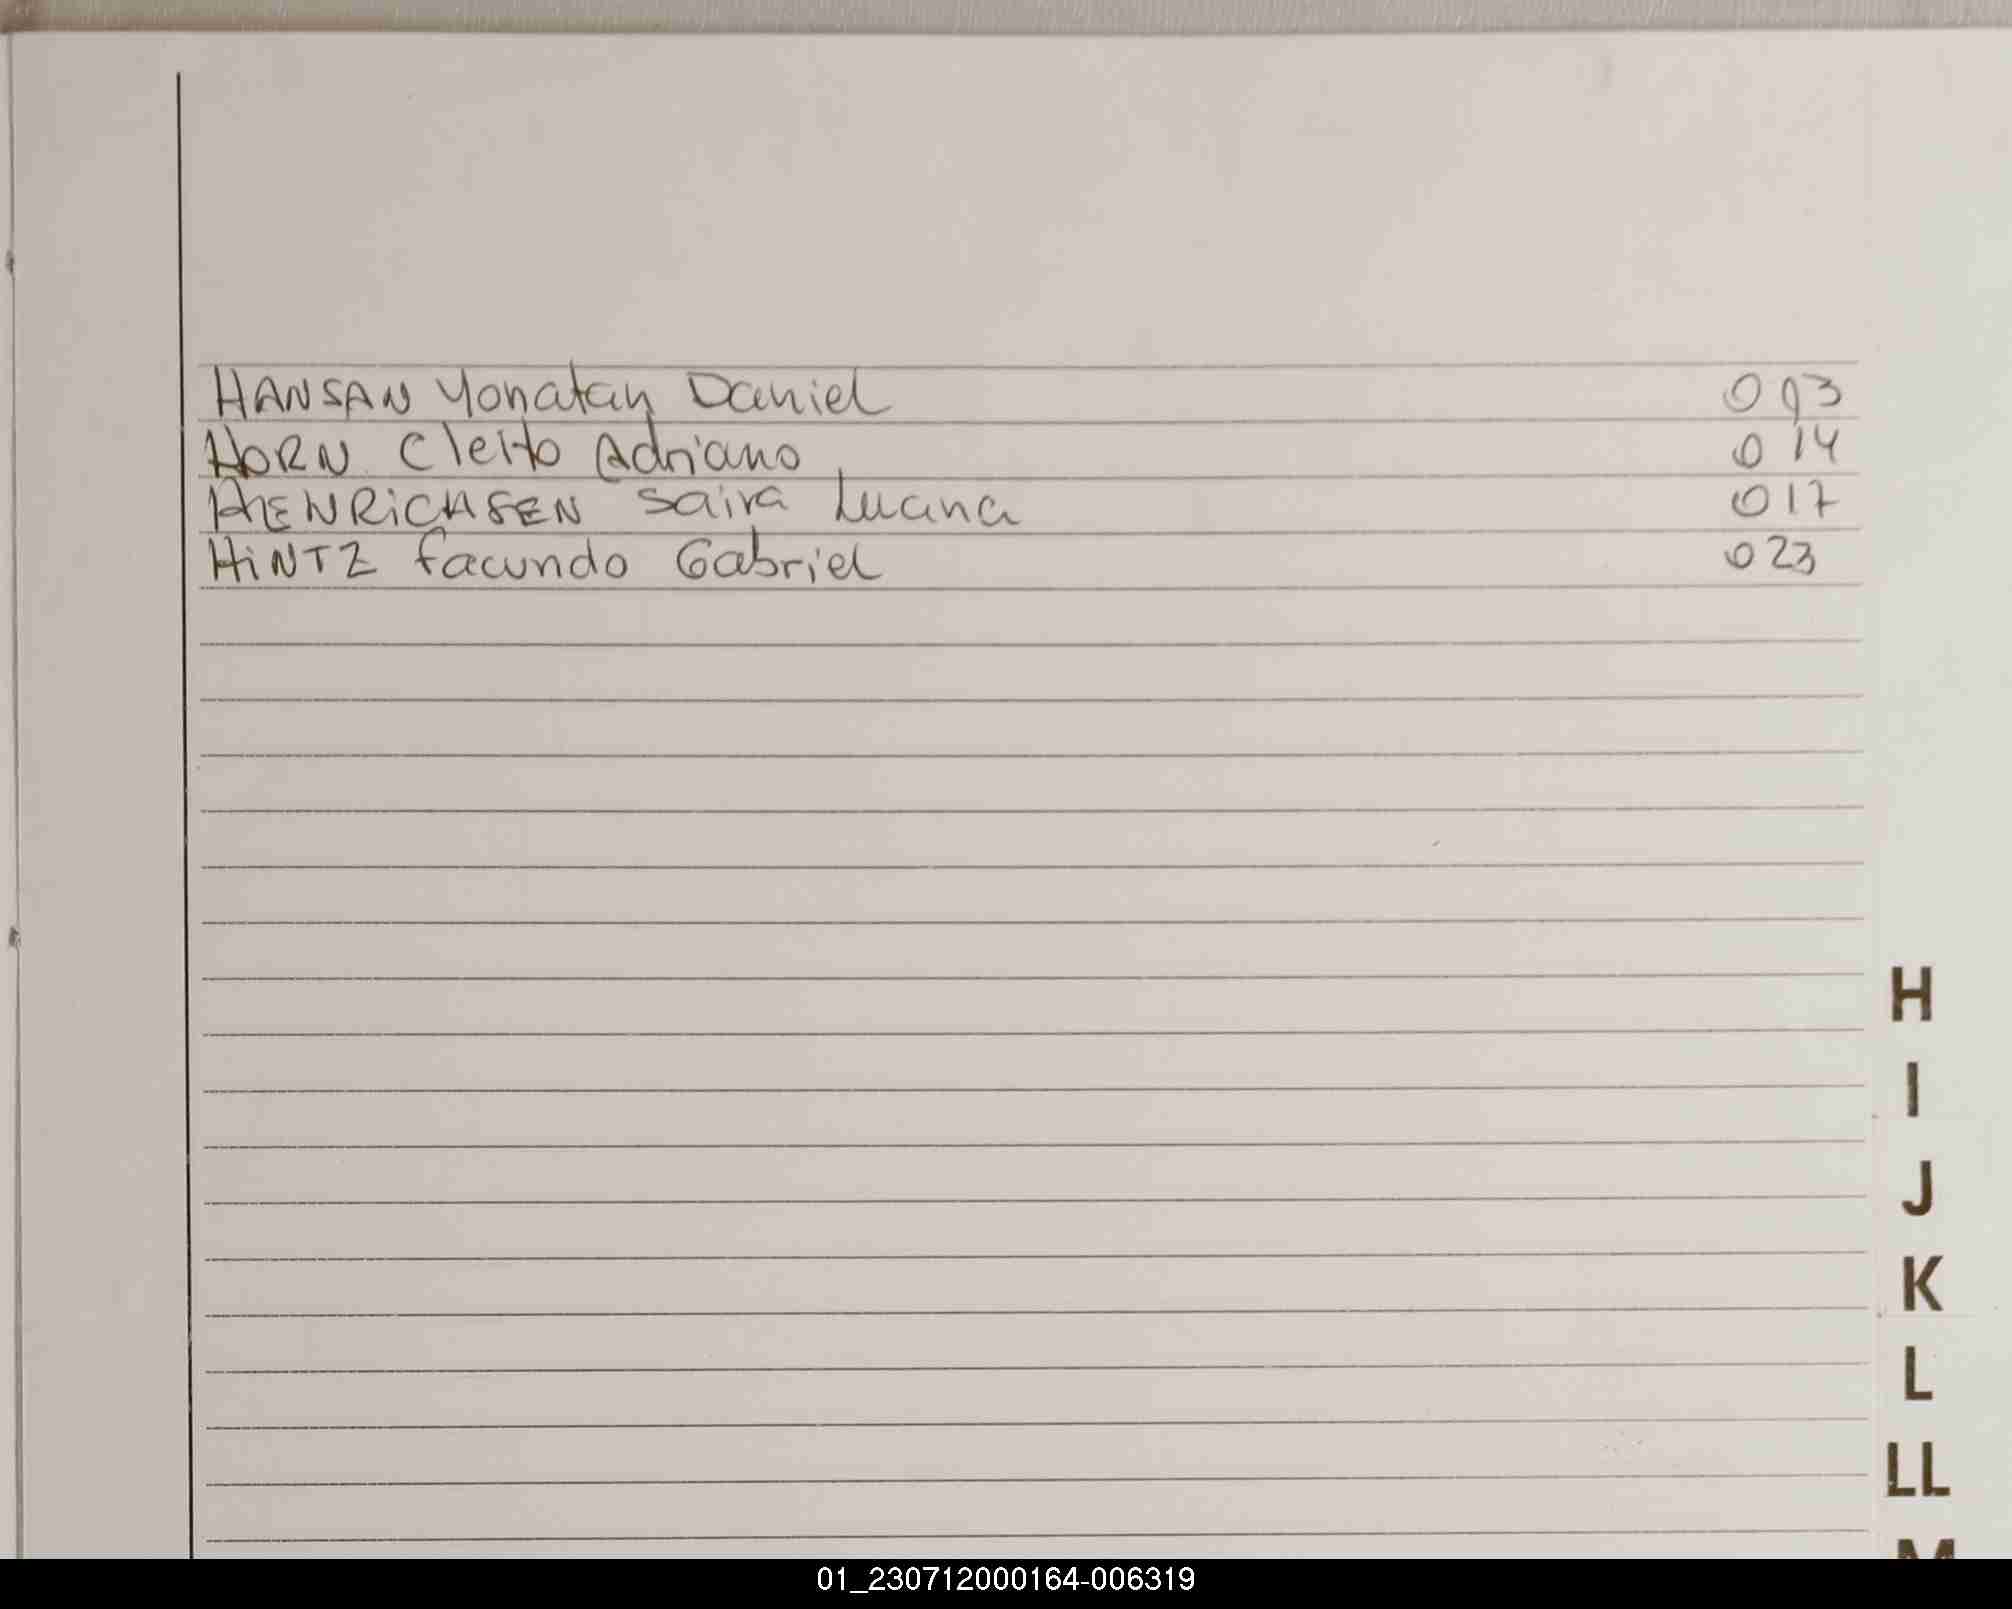 HANSAN Yonatan Daniel 003
HORN Cleito Adriano 014
HENRICHSEN Saira Luana 017
HINTZ Facundo Gabriel 023
H
I
J
K
L
LL
M
01_230712000164-006319